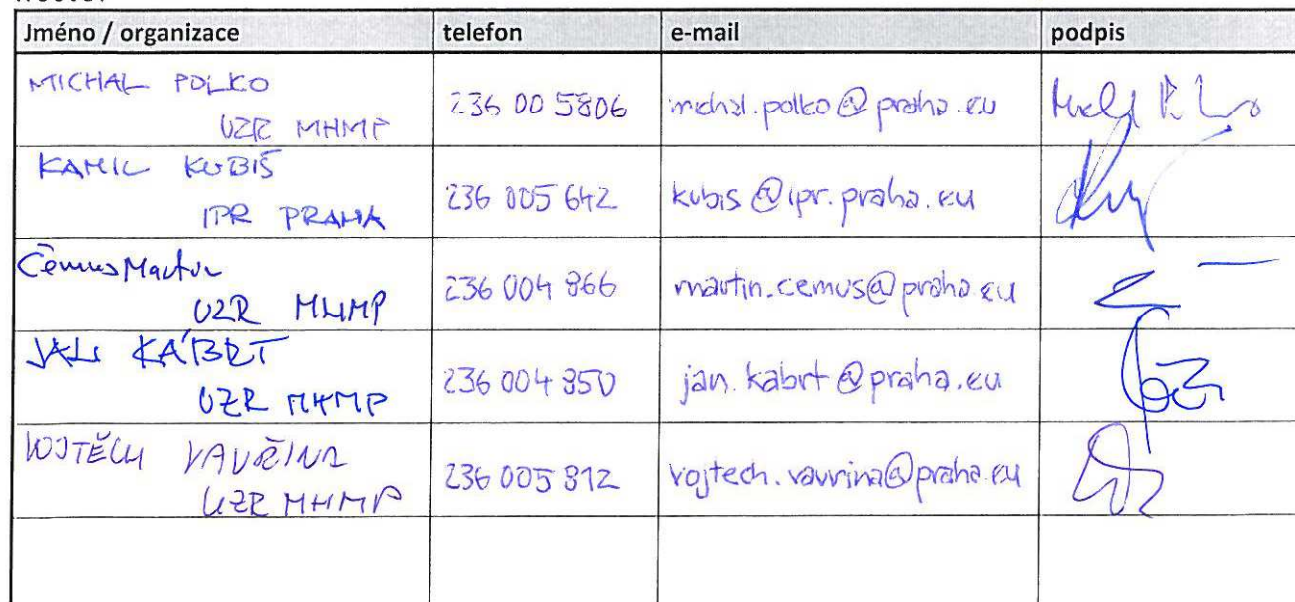 Jméno / organizace telefon e-mail podpis
MICHAL POLKO
UZR MHMP
236 00 5806 michal.polko@praha.eu
KAMIL KUBIŠ
IPR PRAHA
236 005 642 kubis@ipr.praha.eu
Čemus Martin
UZR MHMP
236 004 866 martin.cemus@praha.eu
JAN KÁBRT
UZR MHMP
236 004 350 jan.kabrt@praha.eu
VOJTĚCH VAVŘINA
UZR MHMP
236 005 812 vojtech.vavrina@praha.eu